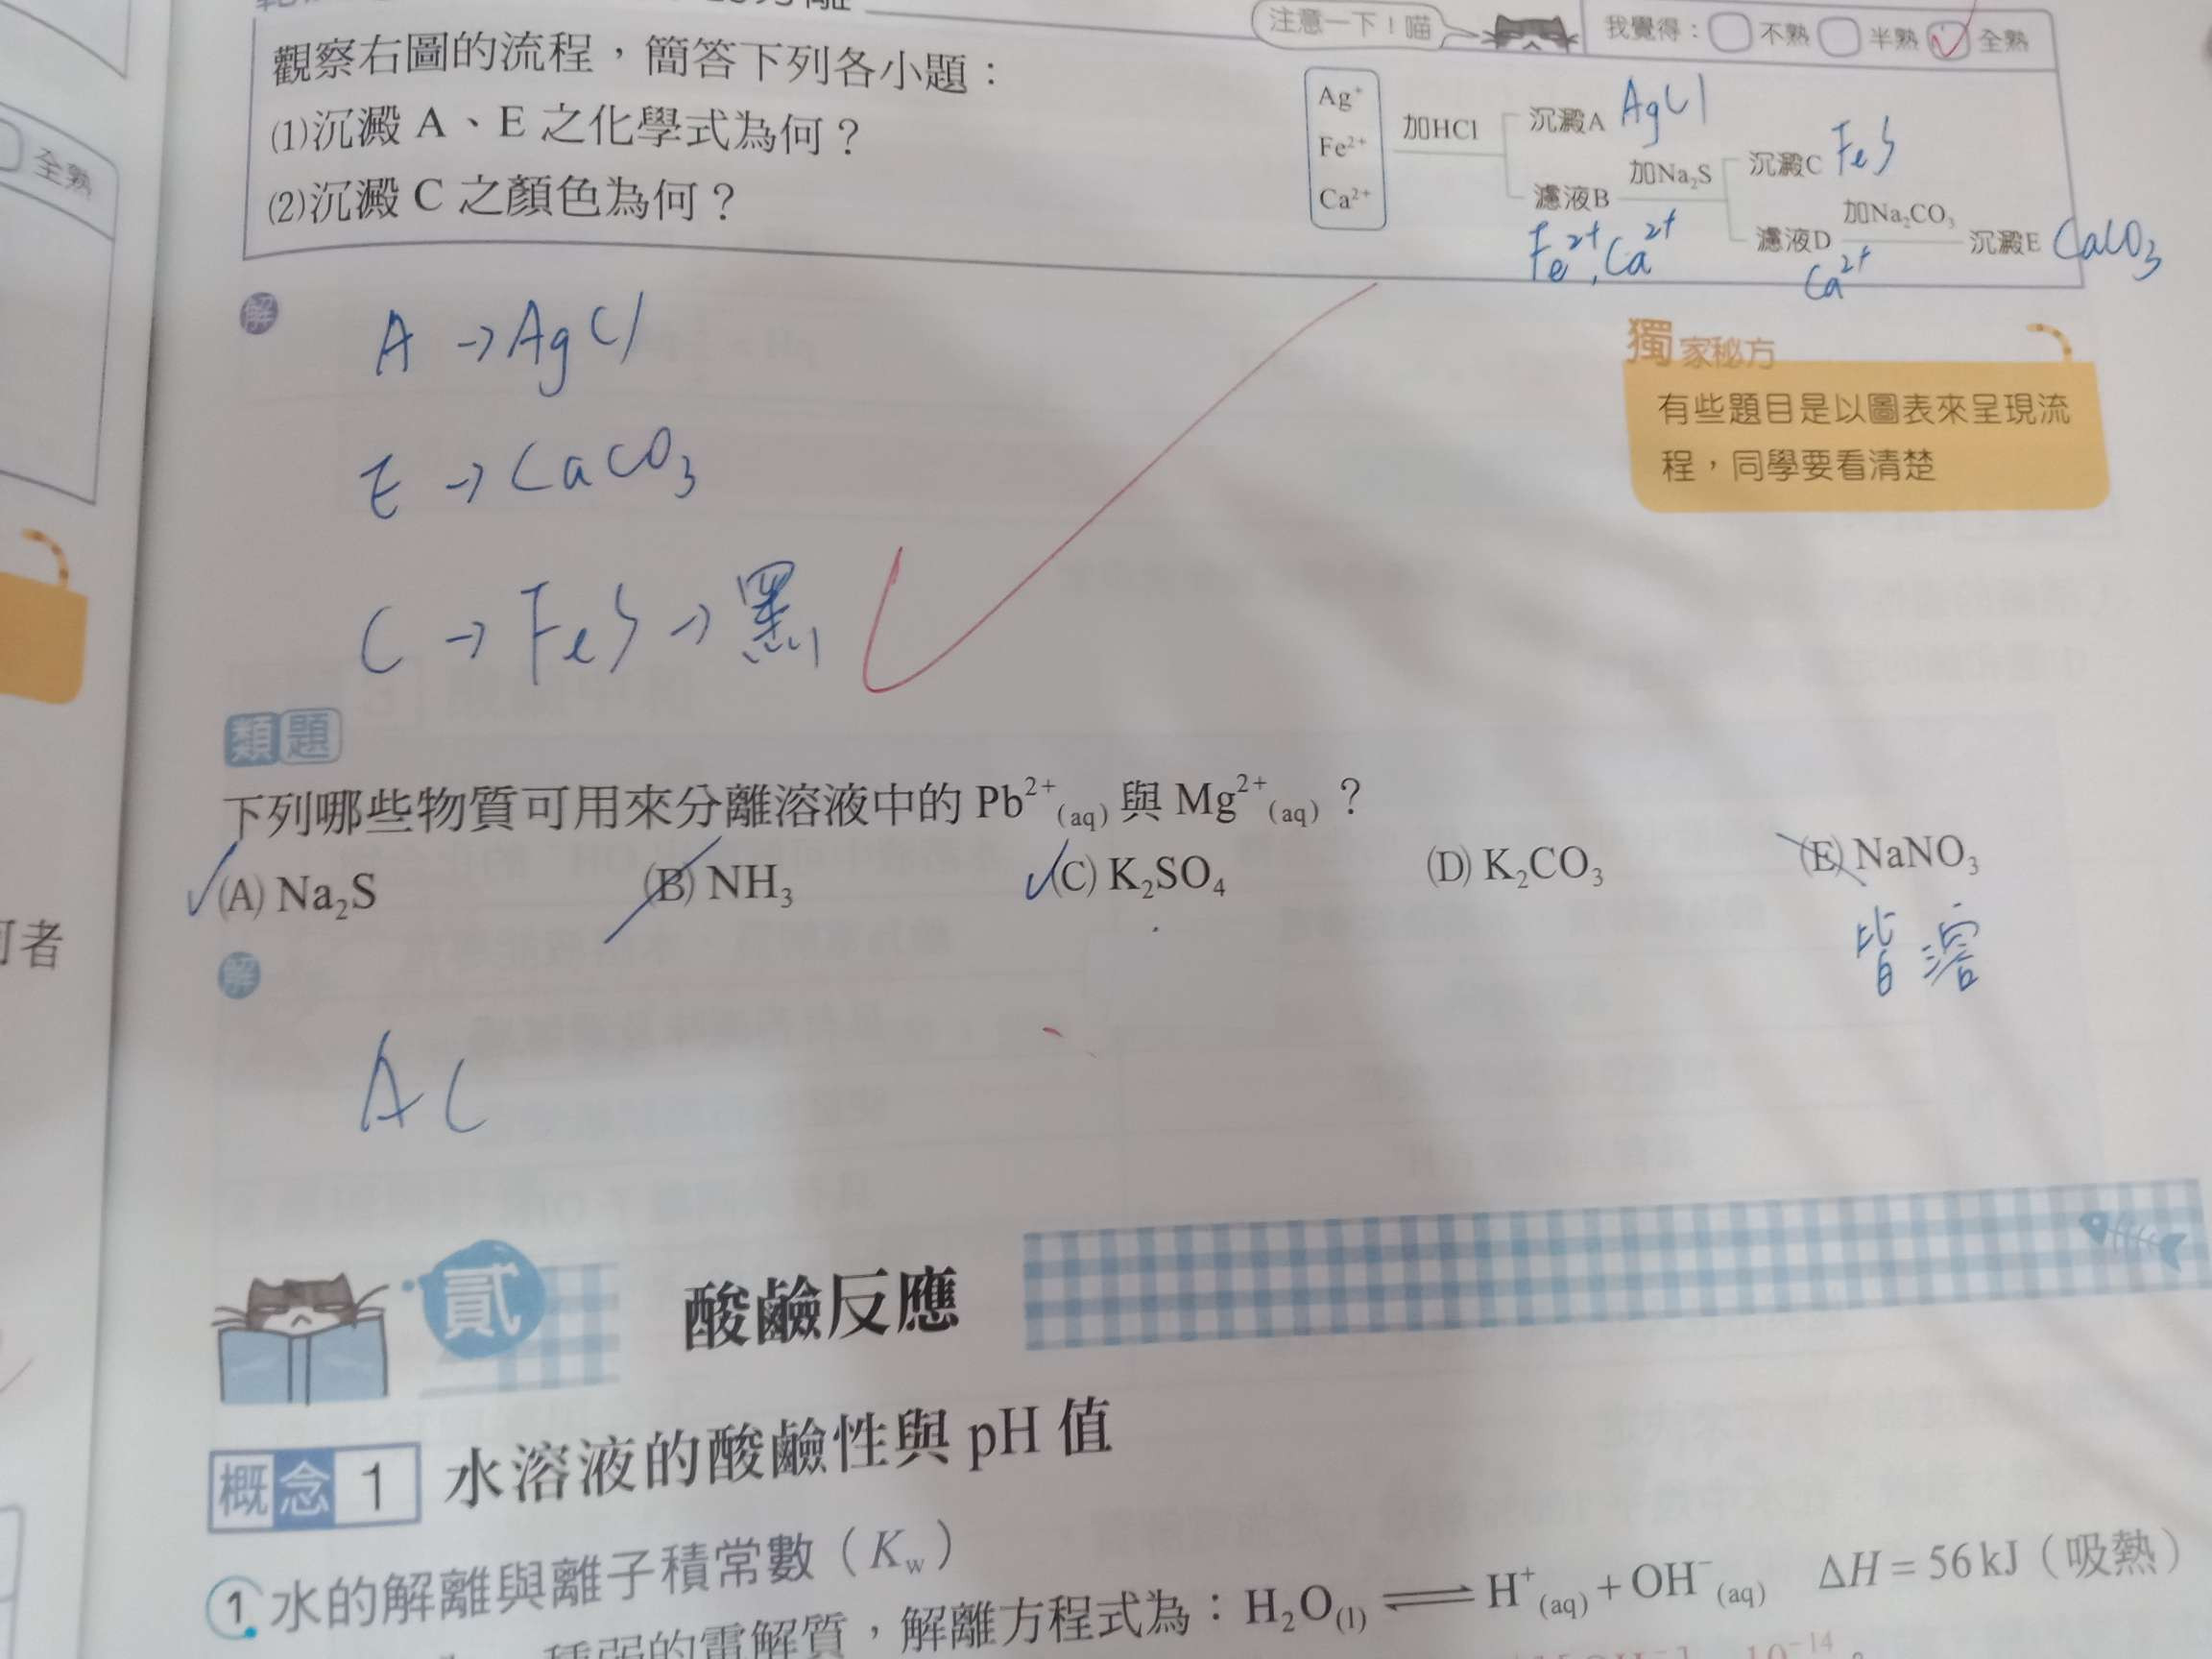 注意一下！喵
我覺得：不熟 半熟 全熟
觀察右圖的流程，簡答下列各小題：
⑴沉澱 A、E 之化學式為何？
⑵沉澱 C 之顏色為何？
Ag⁺
Fe²⁺
Ca²⁺
加HCl
沉澱A AgCl
濾液B
Fe²⁺, Ca²⁺
加Na₂S
沉澱C FeS
濾液D
Ca²⁺
加Na₂CO₃
沉澱E CaCO₃
全熟
解
A → AgCl
E → CaCO₃
C → FeS → 黑
獨家秘方
有些題目是以圖表來呈現流
程，同學要看清楚
類題
下列哪些物質可用來分離溶液中的 Pb²⁺(aq) 與 Mg²⁺(aq)？
(A) Na₂S (B) NH₃ (C) K₂SO₄ (D) K₂CO₃ (E) NaNO₃
皆溶
者
解
AC
貳 酸鹼反應
概念 1 水溶液的酸鹼性與 pH 值
1. 水的解離與離子積常數（Kw）
種弱的電解質，解離方程式為：H₂O(l) ⇌ H⁺(aq) + OH⁻(aq) ΔH = 56 kJ（吸熱）
10⁻¹⁴。